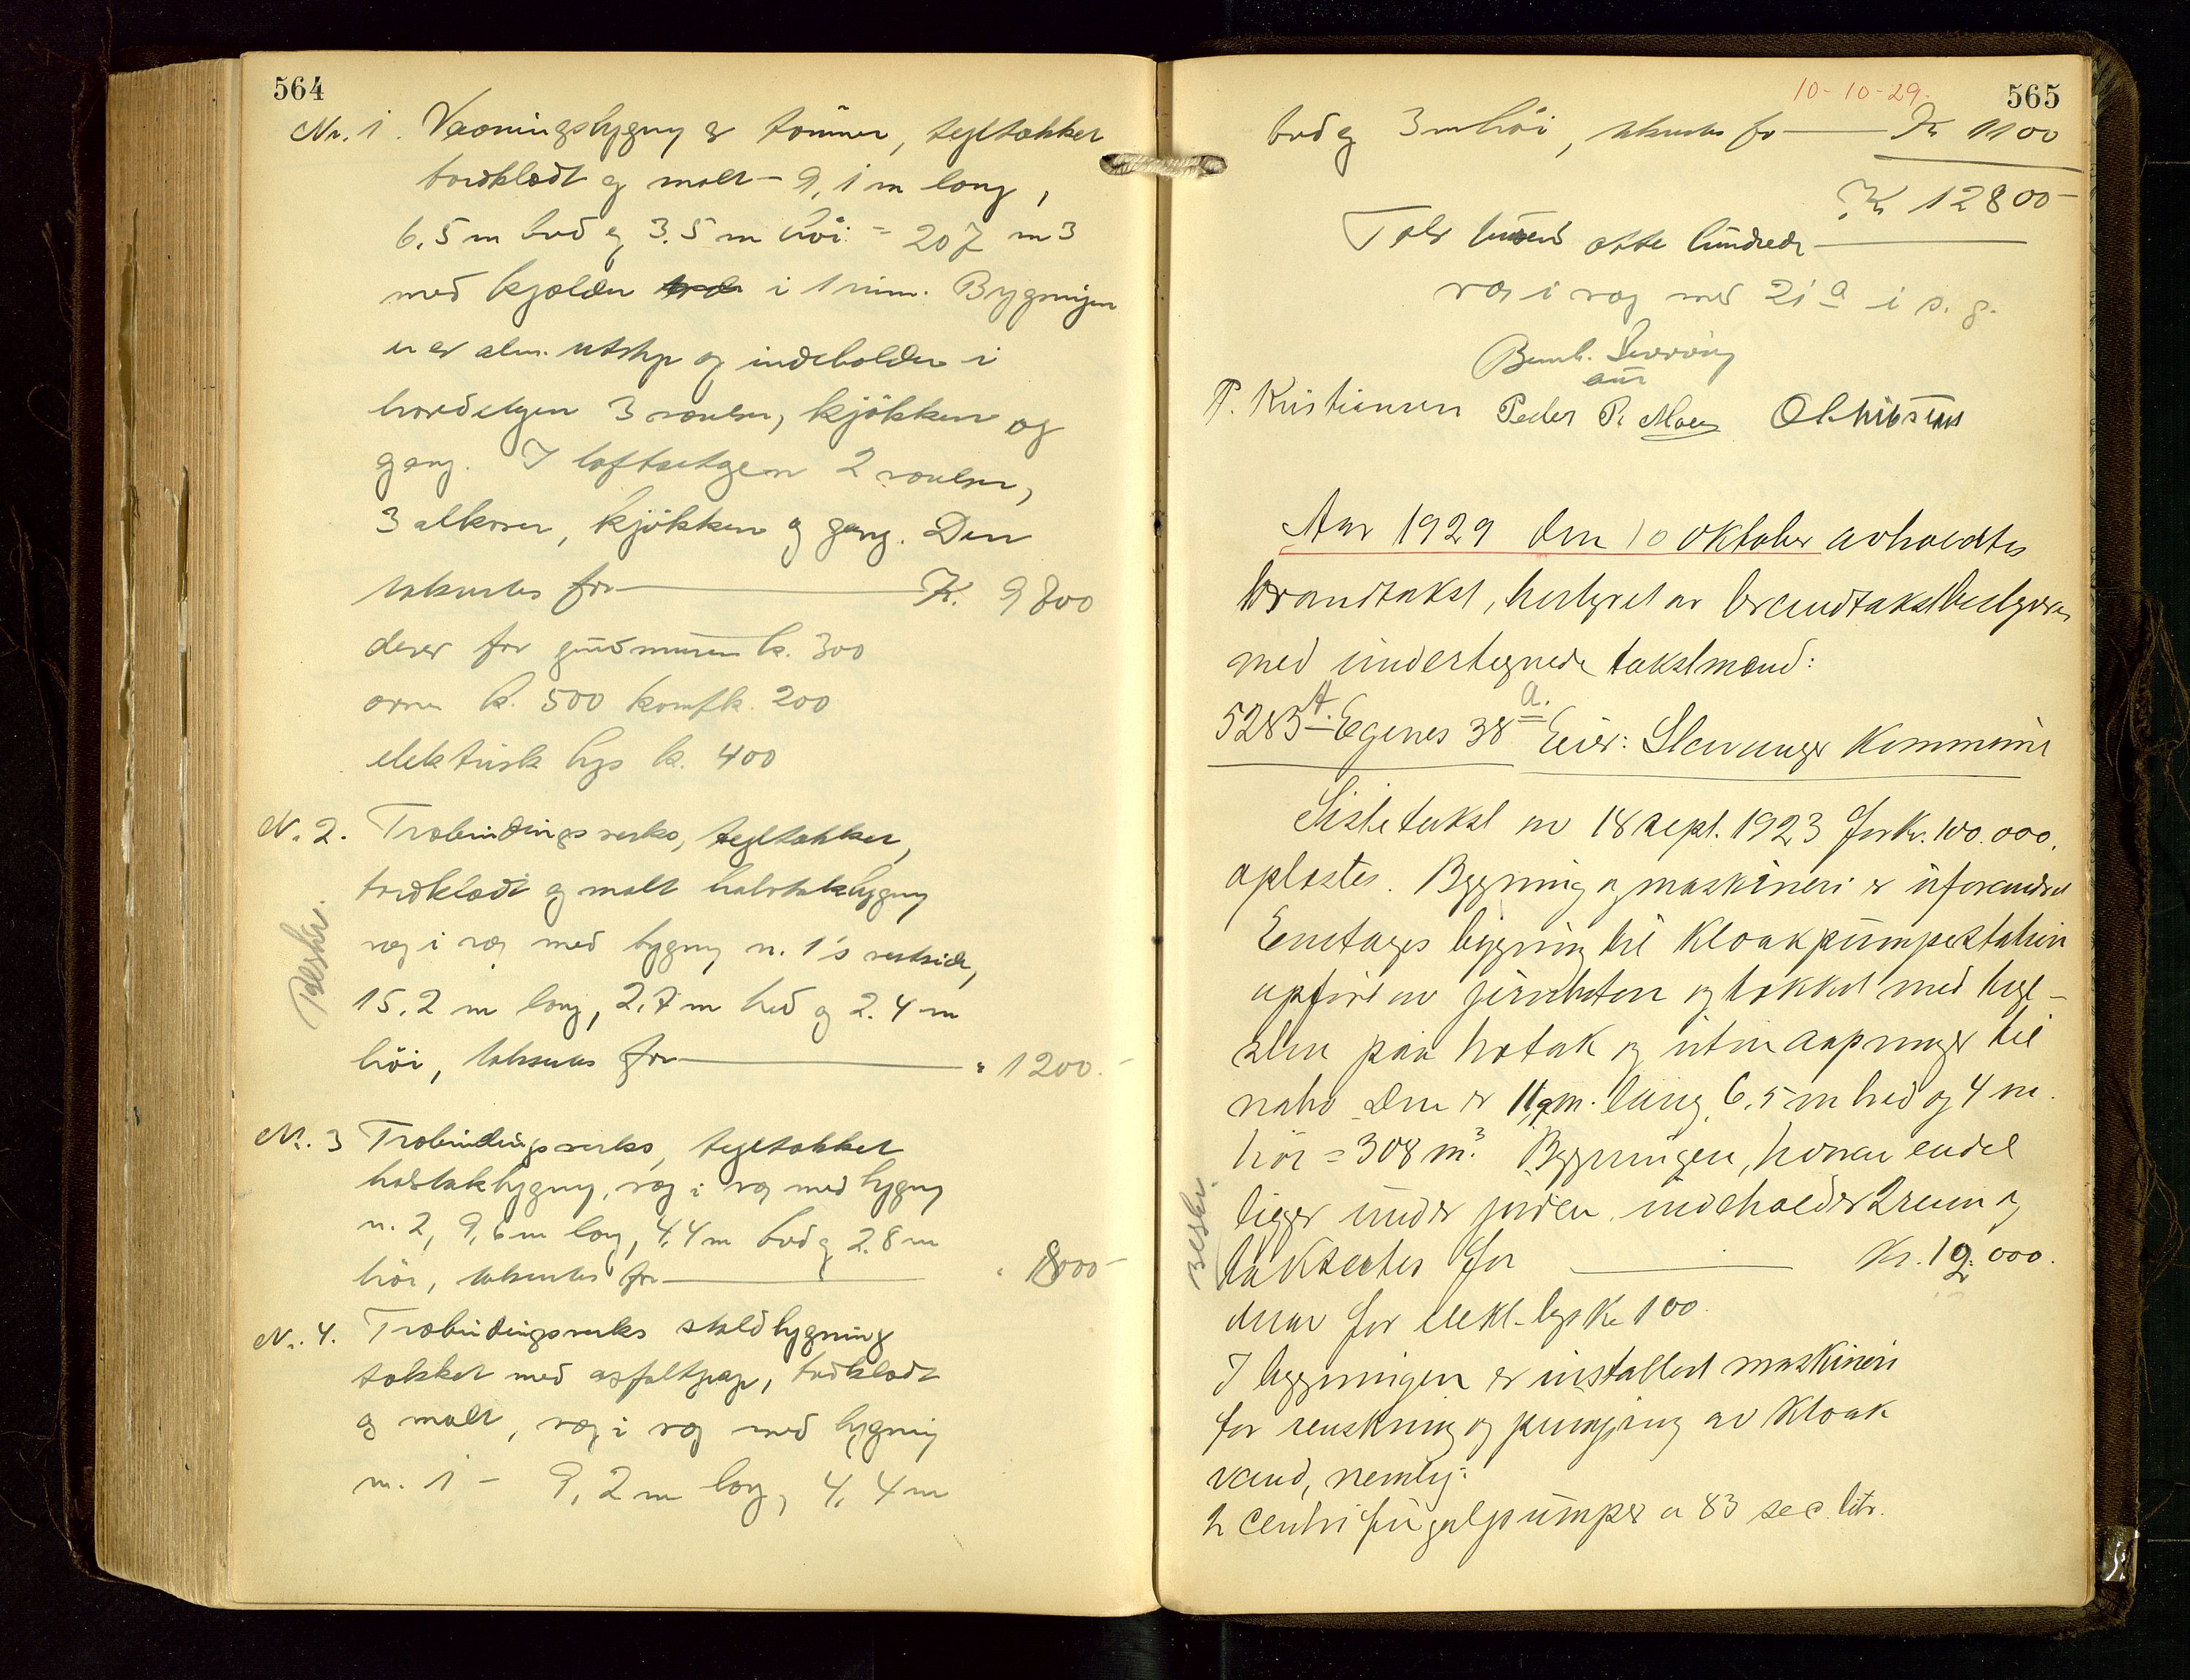 564
Nr. 1. Vaaningsbygng av tömmer, tegltækket
bordklædt og malt - 9,1 m lang,
6.5 m bred og 3.5 m höi = 207 m3
med kjælder i 1 rum. Bygningen
er av alm. utstyr og indeholder i
hovedetagen 3 værelser, kjökken og
gang. I loftsetagen 2 værelser,
3 alkover, kjökken og gang. Den
takseres for — Kr. 9500
derav for grundmuren k. 300
ovner k. 500 komf k. 200
elektrisk lys k. 400
Nr. 2. Træbindingsverks, tegltækket,
bordklædt og malt halvtaksbygng
væg i væg med bygng n. 1's vestside,
15.2 m lang, 2.7 m bred og 2.4 m
höi, takseres for — " 1200.-
Beskr.
Nr. 3 Træbindingsverks, tegltækket
halvtakbygng, væg i væg med bygng
n. 2, 9,6 m lang, 4,4 m bred og 2.8 m
höi, takseres for — " 1000-
Nr. 4. Træbindingsverks staldbygning
tækket med asfaltpap, bordklædt
og malt, væg i væg med bygning
n. 1 - 9,2 m lang, 4,4 m
10-10-29.
565
bred og 3 m höi, takseres for — Kr 1100
Kr 12800-
Tolv tusend otte hundrede —
væg i væg med 21 a i s. g.
P. Kristiansen Peder P. Moen
Aar 1929 den 10 oktober avholdtes
brandtakst, bestyret av brandtakstbestyreren
med undertegnede takstmænd:
5283 A. Egenes 38 a. Eier: Stavanger Kommune
Siste takst av 18 sept. 1923 for Kr. 100.000.
oplæstes. Bygning og maskineri er uforandret
Enetages bygning til Kloakpumpestation
opført av jernbeton og tækket med tegl-
sten paa tretak og uten aapninger til
nabo. Den er 11,9 m. lang, 6.5 m bred og 4 m.
höi = 308 m³. Bygningen, hvorav endel
ligger under jorden, indeholder 2 rum og
taksertes for — Kr. 12.000.
Beskr.
derav for elekt. lys Kr 100.
I bygningen er installert maskineri
for renskning og pumping av Kloak
vand, nemlig:
2 Centrifugalpumper a 83 sec. litr.